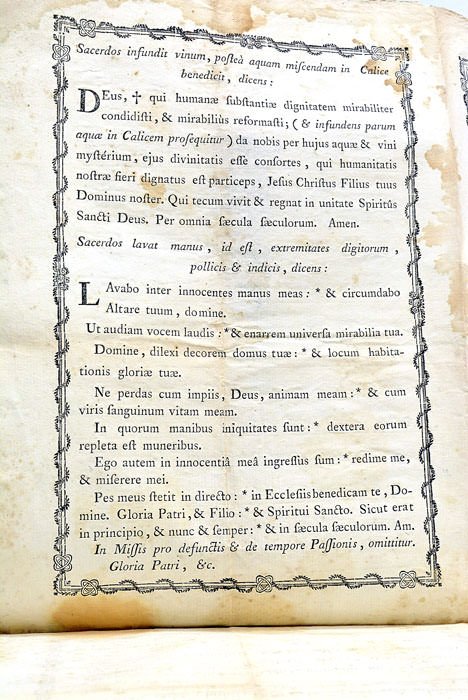 Sacerdos infundit vinum, posteà aquam miſcendam in Calice
benedicit, dicens :
DEus, ✝ qui humanæ ſubſtantiæ dignitatem mirabiliter
condidiſti, & mirabiliùs reformaſti; ( & infundens parum
aquæ in Calicem proſequitur ) da nobis per hujus aquæ & vini
myſtérium, ejus divinitatis eſſe conſortes , qui humanitatis
noſtræ fieri dignatus eſt particeps , Jeſus Chriſtus Filius tuus
Dominus noſter. Qui tecum vivit & regnat in unitate Spiritûs
Sancti Deus. Per omnia ſæcula ſæculorum. Amen.
Sacerdos lavat manus , id eſt , extremitates digitorum ,
pollicis & indicis, dicens :
LAvabo inter innocentes manus meas : * & circumdabo
Altare tuum, domine.
Ut audiam vocem laudis : * & enarrem univerſa mirabilia tua.
Domine, dilexi decorem domus tuæ : * & locum habita-
tionis gloriæ tuæ.
Ne perdas cum impiis, Deus, animam meam : * & cum
viris ſanguinum vitam meam.
In quorum manibus iniquitates ſunt : * dextera eorum
repleta eſt muneribus.
Ego autem in innocentiâ meâ ingreſſus ſum : * redime me,
& miſerere mei.
Pes meus ſtetit in directo : * in Eccleſiis benedicam te, Do-
mine. Gloria Patri, & Filio : * & Spiritui Sancto. Sicut erat
in principio, & nunc & ſemper : * & in ſæcula ſæculorum. Am.
In Miſſis pro defunctis & de tempore Paſſionis, omittitur.
Gloria Patri, &c.